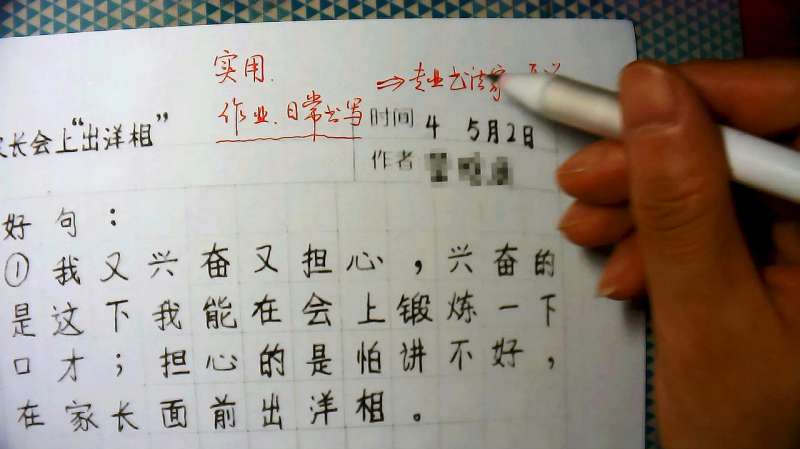 实用.
⇒专业书法家
作业.日常书写
时间 4 5月2日
长会上“出洋相”
作者
好句：
①我又兴奋又担心，兴奋的
是这下我能在会上锻炼一下
口才；担心的是怕讲不好，
在家长面前出洋相。